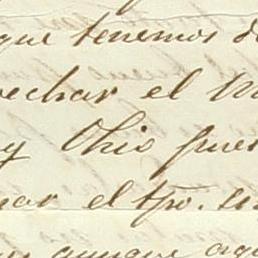 que tenemos de
echar el
y Ohio pues
ar el tpo. se
aunque aqu